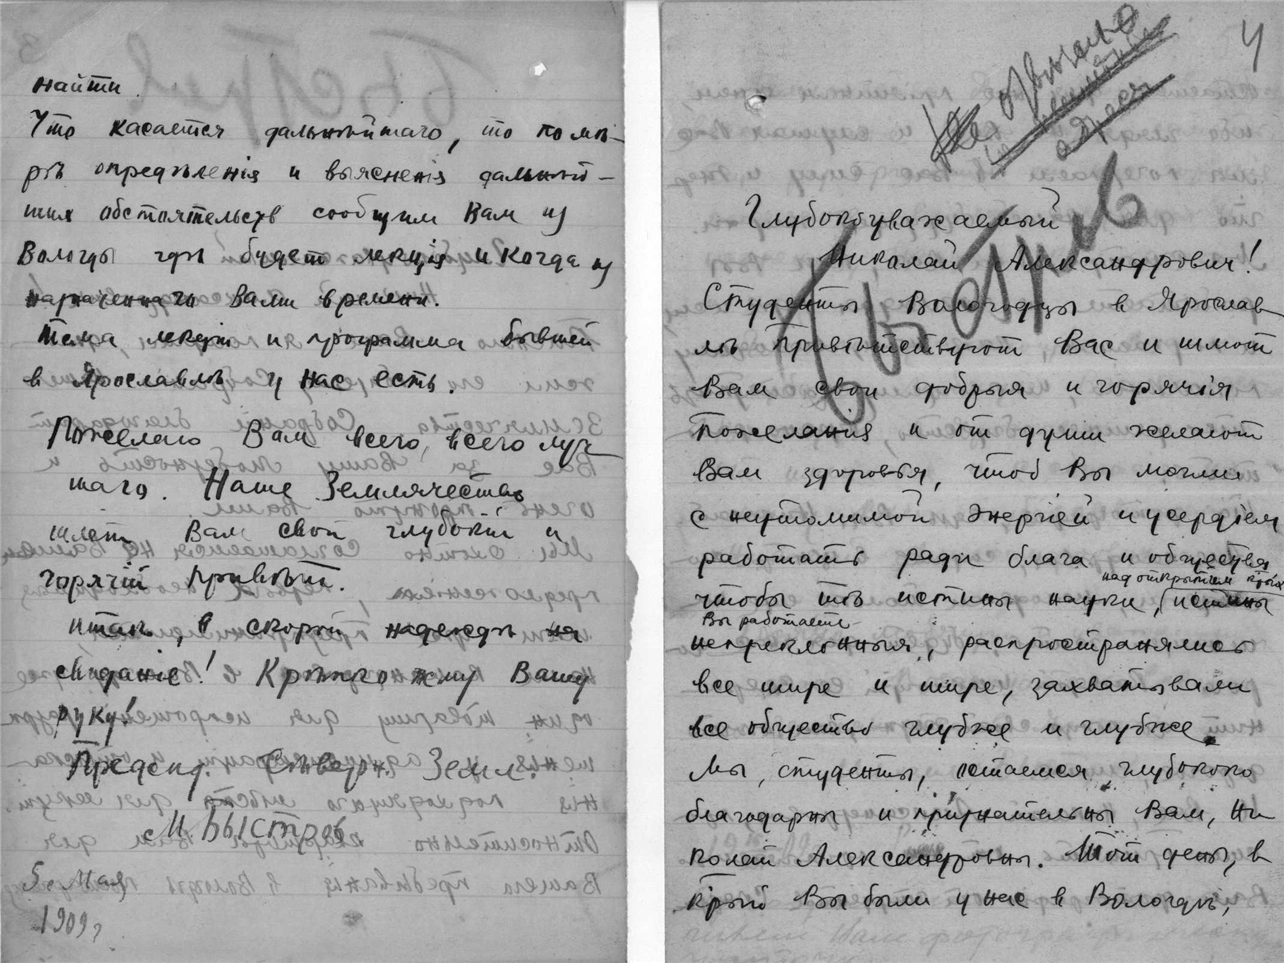 найти.
Что касается дальнѣйшаго, то по мѣ-
рѣ опредѣленія и выясненія дальнѣй-
шихъ обстоятельств сообщим Вам из
Вологды гдѣ будет лекція и когда из
назначеннаго Вами времени.
Тема лекціи и программа бывшей
в Ярославлѣ у нас есть.
Пожелаю Вам всего, всего луч-
шаго. Наше Землячество
шлет Вам свой глубокій и
горячій привѣт.
итак, в скорой надеждѣ на
свиданіе! Крѣпко жму Вашу
руку!
Предсѣд. Сѣверн. Земл.
М Быстров
5 Мая
1909 г
4
Не отвѣчено
адреса
Быстров
Глубокоуважаемый
Николай Александрович!
Студенты Вологодцы в Ярослав-
лѣ привѣтствуют Вас и шлют
Вам свои добрыя и горячія
пожеланія и от души желают
Вам здоровья, чтоб Вы могли
с неутомимой энергіей и усердіем
работать ради блага и общества
над открытіем крых
чтобы тѣ истины науки, истины
Вы работаете
непреклонныя, распространялись
все шире и шире, захватывали
все общество глубже и глубже.
Мы, студенты, остаемся глубоко
благодарны и признательны Вам, Ни
колай Александровичъ. Тот день, в
крый Вы были у нас в Вологдѣ,